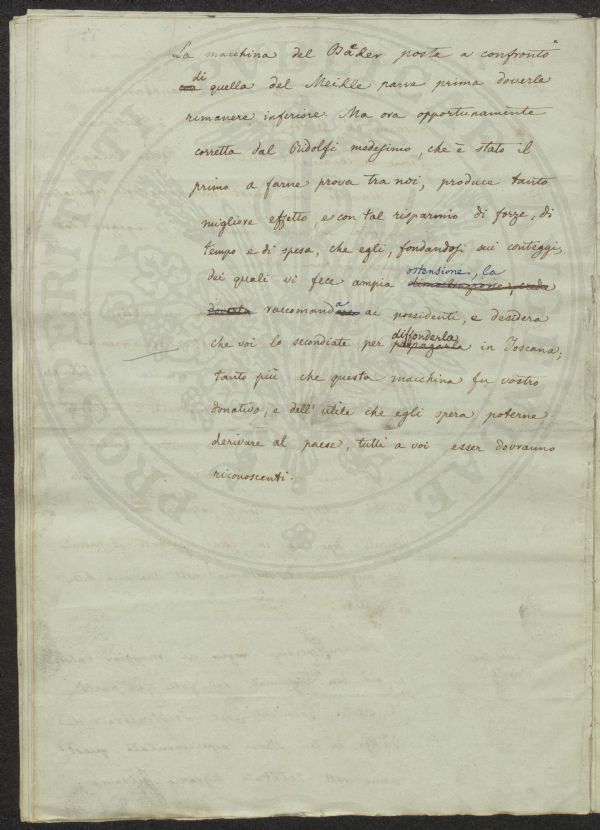 La macchina del Baker posta a confronto
di
con quella del Meikle parve prima doverle
rimanere inferiore. Ma ora opportunamente
corretta dal Ridolfi medesimo, che è stato il
primo a farne prova tra noi, produce tanto
migliore effetto e con tal risparmio di forze, di
tempo e di spesa, che egli, fondandosi sui conteggi,
ostensione, la
dei quali vi fece ampia dimostrazione, crede
raccomanda ai possidenti, e desidera
diffonderla
che voi lo secondiate per propagarla in Toscana;
tanto più che questa macchina fu vostro
donativo, e dell' utile che egli spera poterne
derivare al paese, tutti a voi esser dovranno
riconoscenti.
PROSPERITATI